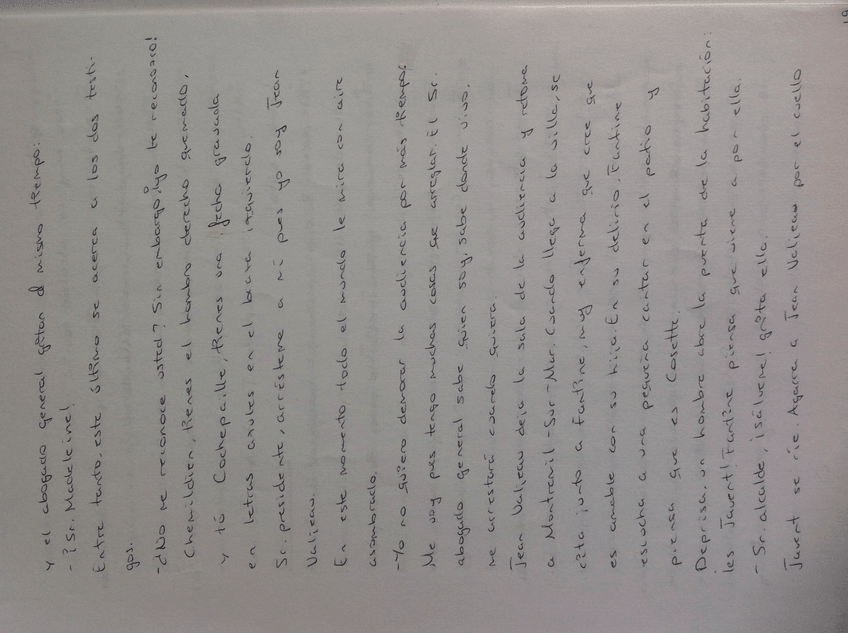 y el abogado general gritan al mismo tiempo:
- ¡Sr. Madeleine!
Entre tanto, este último se acerca a los dos testi-
gos.
-¿No me reconoce usted? Sin embargo ¡yo te reconozco!
Chenildieu, tienes el hombro derecho quemado,
y tú Cochepaille, tienes una fecha gravada
en letras azules en el brazo izquierdo.
Sr. presidente, arrésteme a mí pues yo soy Jean
Valjean.
En este momento todo el mundo le mira con aire
asombrado.
-Yo no quiero demorar la audiencia por más tiempo:
Me voy pues tengo muchas cosas que arreglar. El Sr.
abogado general sabe quien soy, sabe donde vivo:
me arrestará cuando quiera.
Jean Valjean deja la sala de la audiencia y retoma
a Montreuil-Sur-Mer. Cuando llega a la villa, se
cita junto a Fantine, muy enferma que cree que
es amable con su hija. En su delirio, Fantine
escucha a una pequeña cantar en el patio y
piensa que es Cosette.
Deprisa, un hombre abre la puerta de la habitación:
¡es Javert! Fantine piensa que viene a por ella.
- Sr. alcalde, ¡sálveme! grita ella.
Javert se ríe. Agarra a Jean Valjean por el cuello